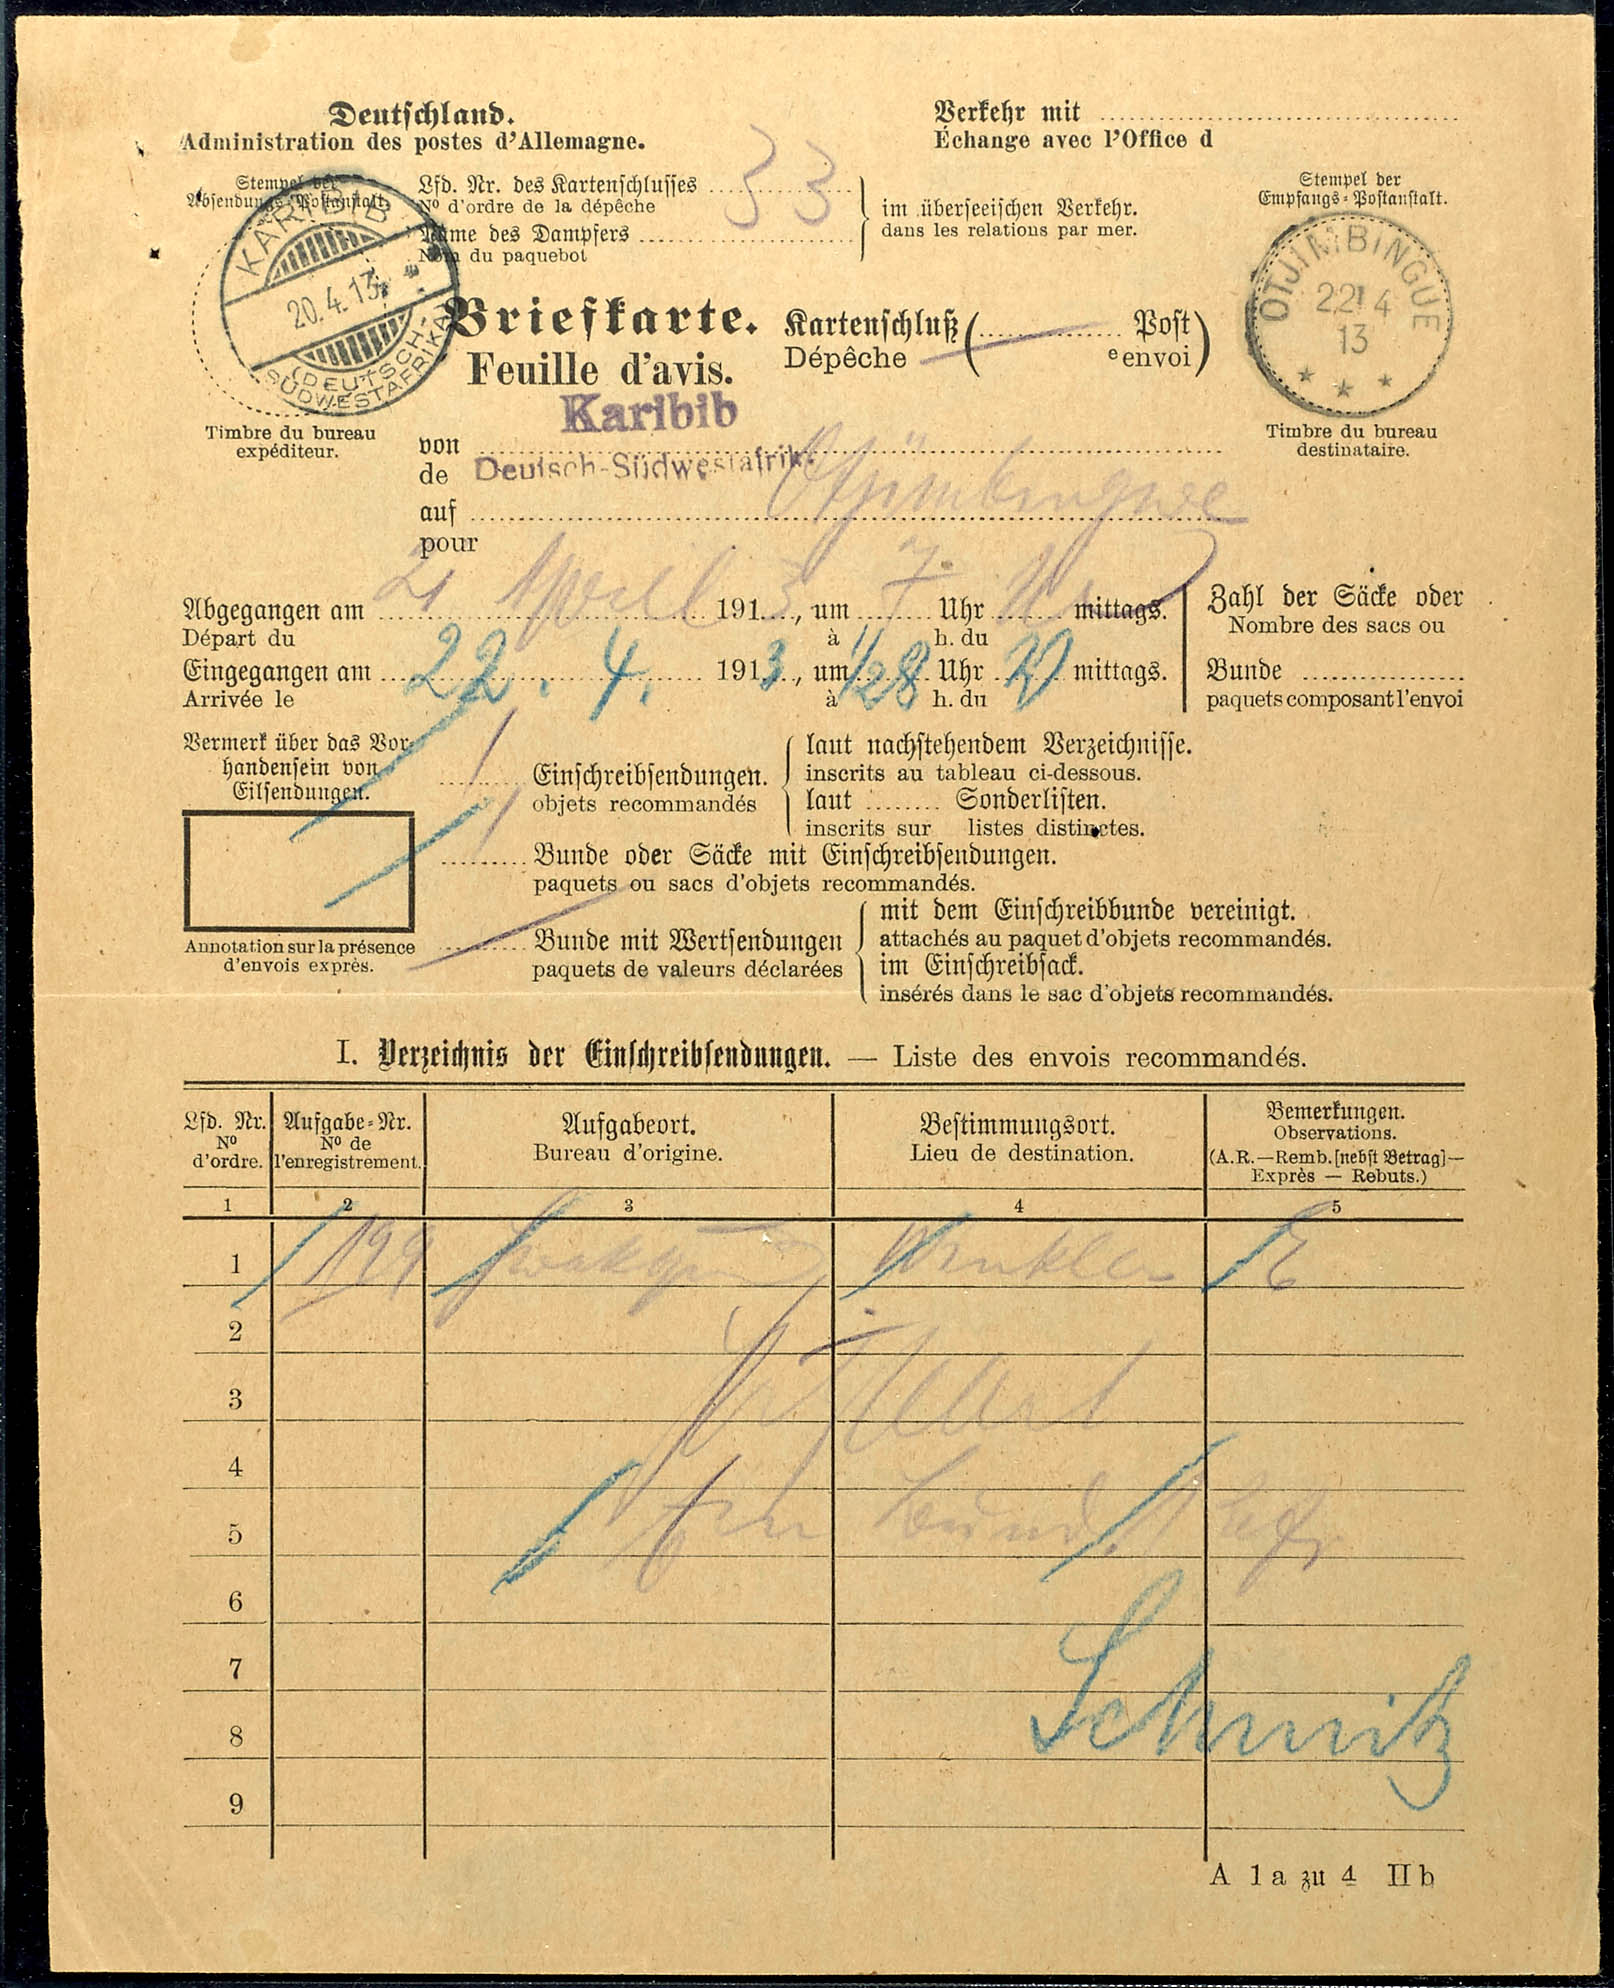 Deutschland.
Administration des postes d'Allemagne.
Verkehr mit
Échange avec l'Office d
Stempel der
Absendungs-Postanstalt.
KARIBIB
20.4.13
(DEUTSCH-
SÜDWESTAFRIKA)
Timbre du bureau
expéditeur.
Lfd. Nr. des Kartenschlusses 33
Nº d'ordre de la dépêche
Name des Dampfers
Nom du paquebot
im überseeischen Verkehr.
dans les relations par mer.
Stempel der
Empfangs-Postanstalt.
OTJIMBINGUE
22 4
13
Timbre du bureau
destinataire.
Briefkarte.
Feuille d'avis.
Kartenschluß ( Post )
Dépêche e envoi
Karibib
von
de Deutsch-Südwestafrika
auf Otjimbingwe
pour
Abgegangen am 21 April 1913, um 7 Uhr mittags.
Départ du à h. du
Eingegangen am 22. 4. 1913, um 1/28 Uhr V mittags.
Arrivée le à h. du
Zahl der Säcke oder
Nombre des sacs ou
Bunde
paquets composant l'envoi
Vermerk über das Vor-
handensein von
Eilsendungen.
Annotation sur la présence
d'envois exprès.
1 Einschreibsendungen.
objets recommandés
laut nachstehendem Verzeichnisse.
inscrits au tableau ci-dessous.
laut Sonderlisten.
inscrits sur listes distinctes.
1 Bunde oder Säcke mit Einschreibsendungen.
paquets ou sacs d'objets recommandés.
Bunde mit Wertsendungen
paquets de valeurs déclarées
mit dem Einschreibbunde vereinigt.
attachés au paquet d'objets recommandés.
im Einschreibsack.
insérés dans le sac d'objets recommandés.
I. Verzeichnis der Einschreibsendungen. — Liste des envois recommandés.
Lfd. Nr.
Nº
d'ordre.
Aufgabe-Nr.
Nº de
l'enregistrement.
Aufgabeort.
Bureau d'origine.
Bestimmungsort.
Lieu de destination.
Bemerkungen.
Observations.
(A.R.—Remb. [nebst Betrag]—
Exprès — Rebuts.)
1 2 3 4 5
1 199 Winkler E
2
3
4
5 Ein Bund
6
7
8 Schmitz
9
A 1a zu 4 II b